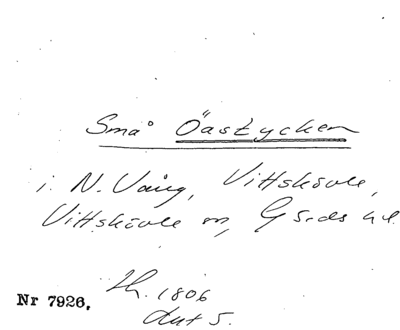 Små Öastycken
i N. Vång, Vittskövle,
Vittskövle sn, Gärds hd.
Lh. 1806
Akt 5.
Nr 7926.